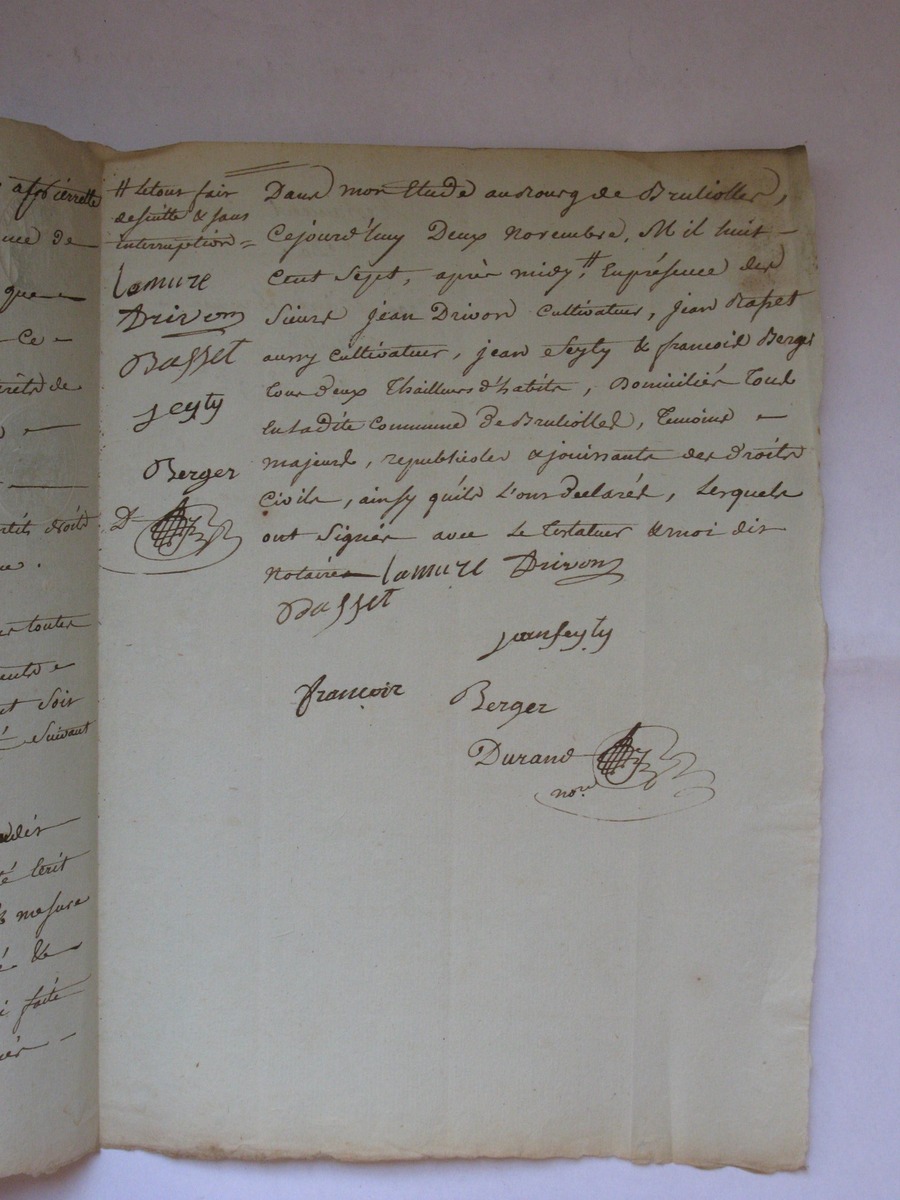 affierrette
que
ce
droits
.
toutes
soit
suivant
Ecrit
mesure
&
faite
# Letout fair
desuitte & sans
interruption =
Lamure
Drivon
Basset
Seyty
Berger
D
Dans mon Etude au Bourg de Brulioller,
Cejourd'huy Deux novembre, Mil huit
Cent Sept, après midy, # Enprésence des
Sieurs jean Drivon Cultivateur, jean Basset
aussy Cultivateur, jean Seyty & francois Berger
tous deux Thailleurs d'habits, Domiciliés tous
En ladite Commune De Bruliolles, temoins
majeurs, republicoles & jouissants des droits
Civils, ainsy qu'ils L'ont declarés, Lesquels
ont Signés avec Le Testateur & moi dit
Notaire Lamure Drivon
Basset
jean seyty
francoir Berger
Durand
nore